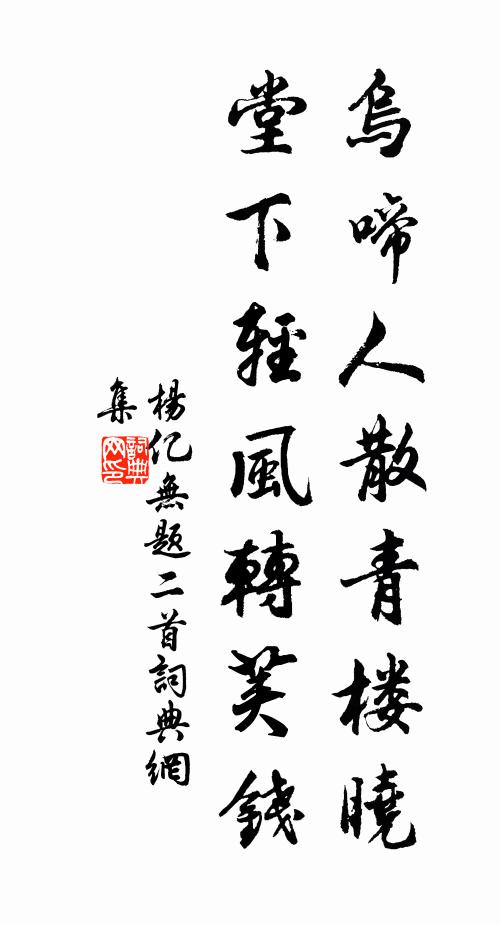 烏啼人散青楼曉
堂下輕風轉荚錢
楊亿無題二首詞典網
集
詞典网印